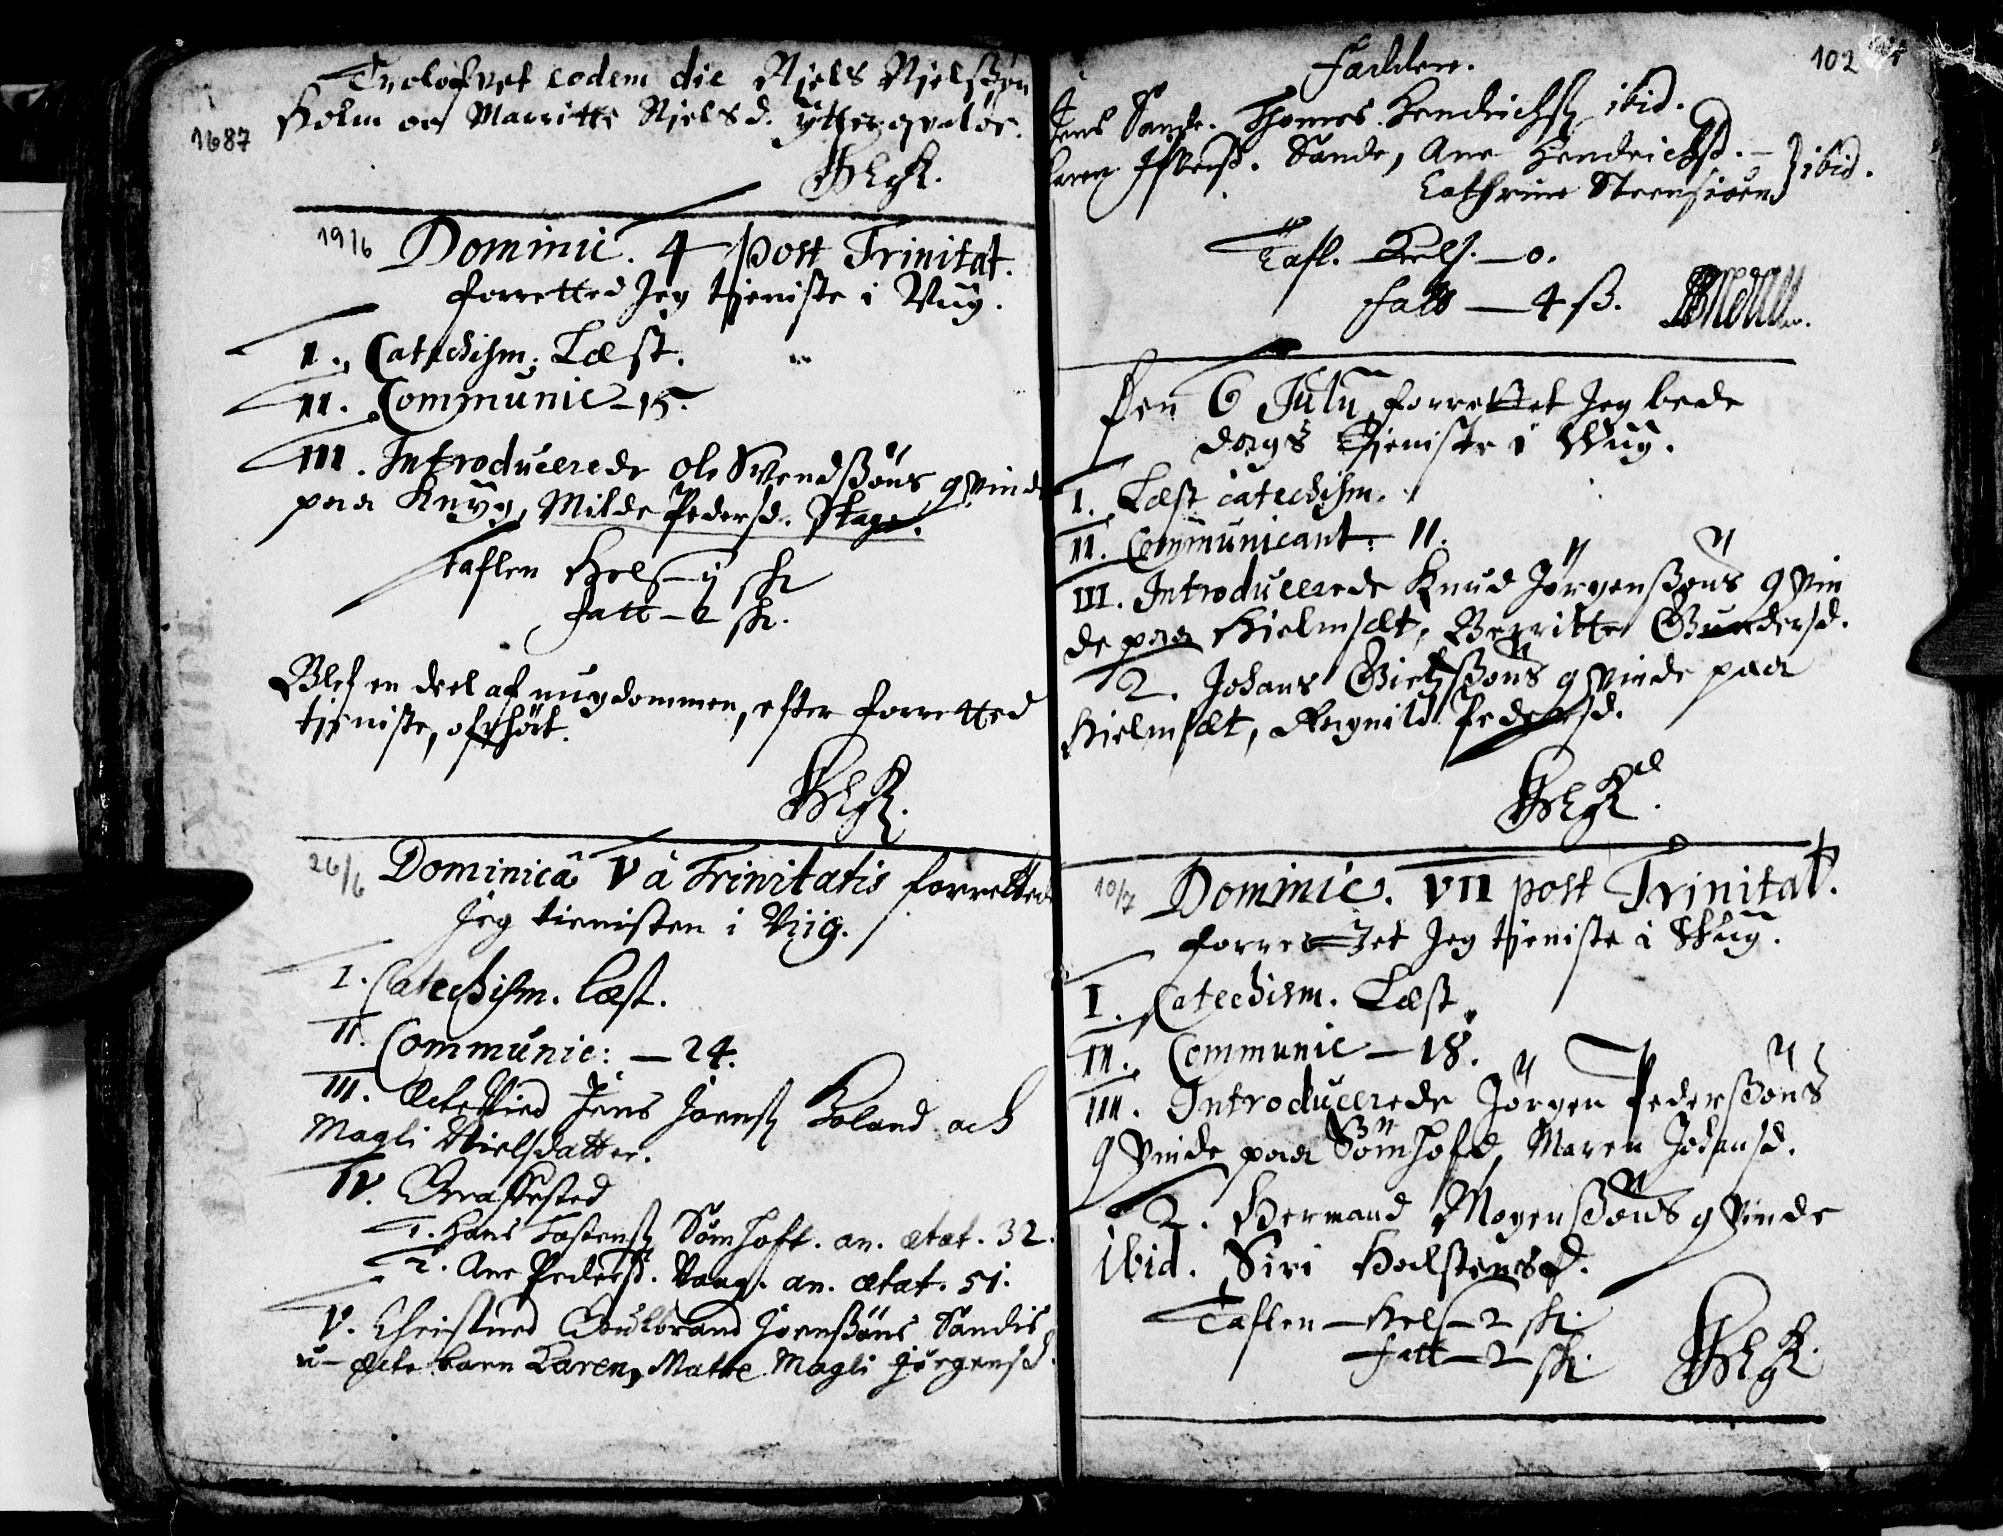 Trolofvet eodem die Niels Nielsßøn
Holm oc Marritte Nielsd.
1687
19/6 Dominic. 4 post Trinitat.
forretted Jeg tieniste i Viig.
I. Catechism. Læst.
II. Communic - 15.
III. Introducerede Ole Svendßøns qvinde
paa Knyg, Milde Pedersd. Stage.
taflen Hels - ij sk
fatt - 2 sk.
Blef en deel af ungdommen, efter forretted
tieniste, ofverhört.
26/6 Dominica V a Trinitatis forretted
Jeg tienisten i Viig.
I. Catechism. læst.
II. Communic: - 24.
III. Ectevied Jens Joens Holand och
Magli Nielsdatter.
IV. Graffested
1. Hans Søm hoft. an. ætat. 32.
2. Ane Pedersd. Vaag. an. ætat. 51.
V. Christned Gulbrand Joensßøns Sandis
u-ecte barn Karen, Matre Magli Jørgensd.
102
Fadder.
Jens Sande. Thomes Hendrichs ibid.
Karen Sande, Ane Hendrichsd. - } ibid.
Cathrine
Tafl. Hels. - 0.
Fatt - 4 ß.
Den 6 Julij forrettet Jeg bede
dags Tieniste i Viig.
I. Læst catechism.
II. Communicant: 11.
III. Introducerede Knud Jørgenßøns qvin
de paa Hielmsæt, Berritte Gundersd.
2. Johans qvinde paa
Hielmsæt, Ragnild Pedersd.
10/7 Dominic. VII post Trinitat.
forrettet Jeg tieniste i Viig.
I. Catechism. Læst
II. Communic - 18.
III. Introducerede Jörgen Pederßöns
qvinde paa Sömhofd, Maren Johansd.
2. Hermand Mogensßøns qvinde
ibid. Siri Holstensd.
Taflen - Hels - 2 sk.
Fatt - 2 sk.